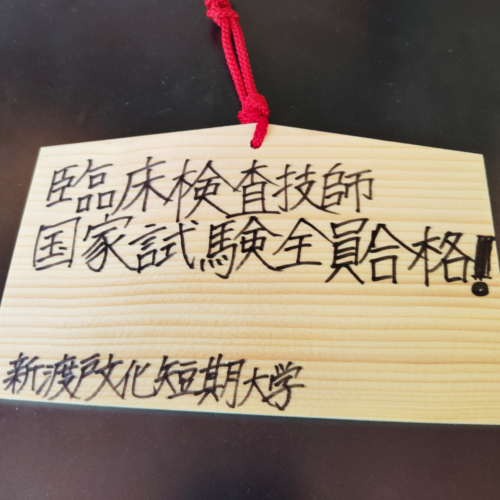 臨床検査技師
国家試験全員合格!
新渡戸文化短期大学